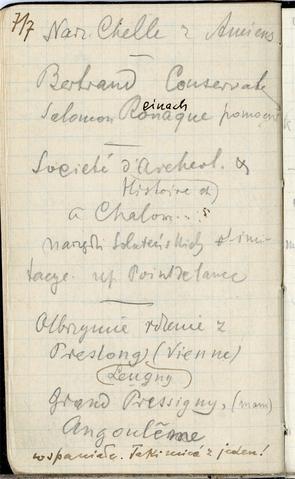 7/7
Narz. Chelle z Amiens
Bertrand Conservate
Salomon Ronaque einach pomocnik
Societé d'Archeol. &
Histoire d)
a Chalon...
narzędzi Soluteńskich
tacye. np Pointe lance
Olbrzymie rdzenie z
Preslong (Vienne)
Leugny
Grand Pressigny, (mam)
Angoulême
wspaniałe. Takimie z jeden!